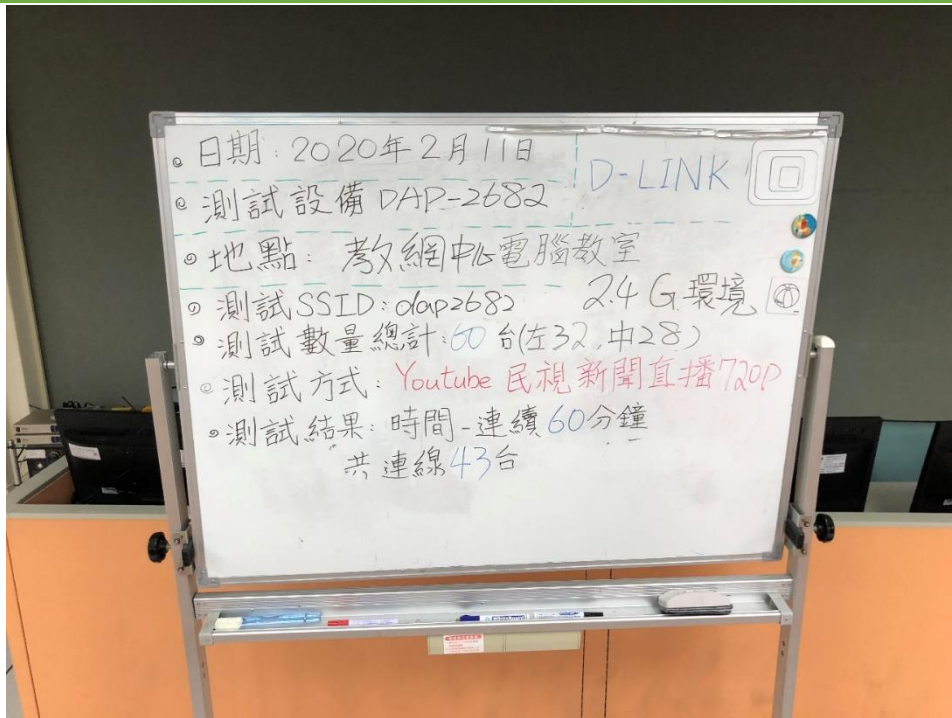 日期: 2020年2月11日
D-LINK
測試設備 DAP-2682
地點: 教網中心電腦教室
測試SSID: dap2682 2.4 G 環境
測試數量總計: 60 台(左32,中28)
測試方式: Youtube 民視新聞直播720P
測試結果: 時間-連續60分鐘
共連線43台